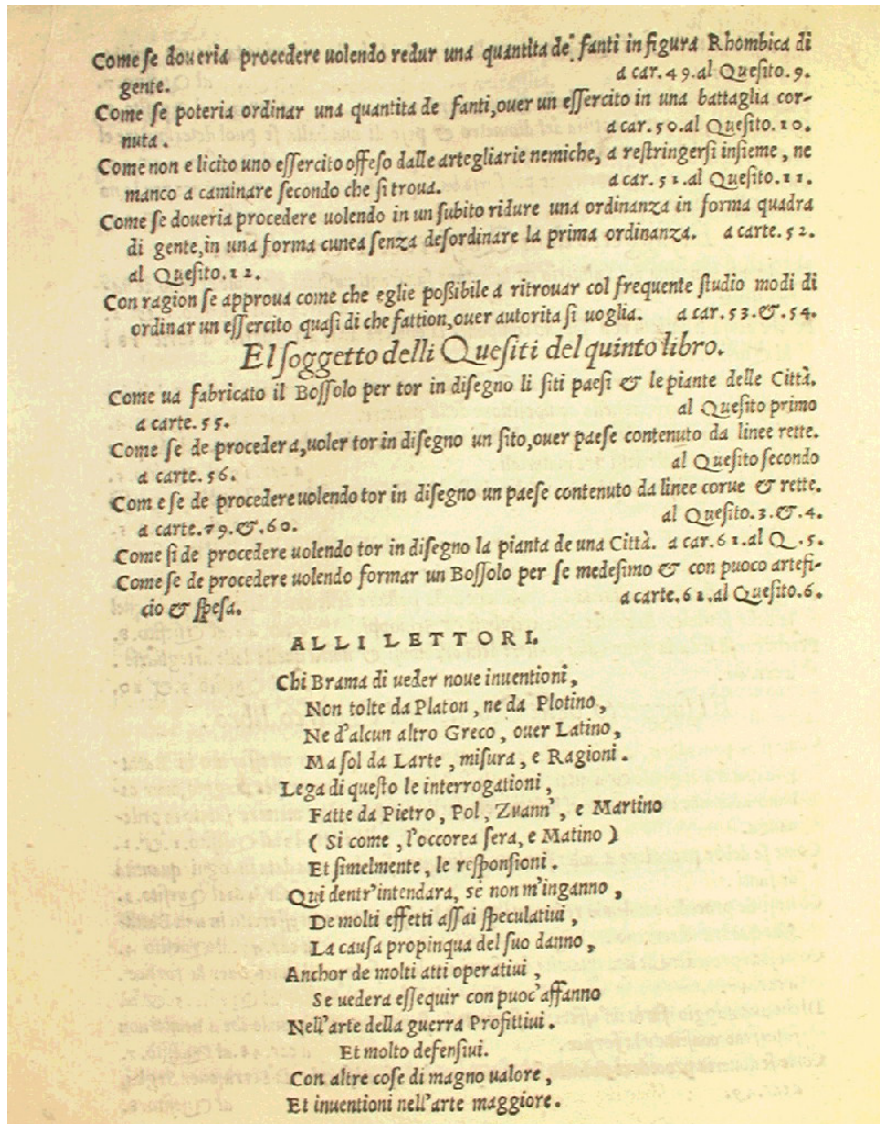 Come ſe doueria procedere uolendo redur una quantita de fanti in figura Rhombica di
gente. a car.49.al Queſito.9.
Come ſe poteria ordinar una quantita de fanti,ouer un eſſercito in una battaglia cor-
nuta. a car.50.al Queſito.10.
Come non e licito uno eſſercito offeſo dalle artegliarie nemiche, a reſtringerſi inſieme, ne
manco a caminare ſecondo che ſi troua. a car.51.al Queſito.11.
Come ſe doueria procedere uolendo in un ſubito ridure una ordinanza in forma quadra
di gente,in una forma cunea ſenza deſordinare la prima ordinanza. a carte.52.
al Queſito.12.
Con ragion ſe approua come che eglie poßibile a ritrouar col frequente ſtudio modi di
ordinar un eſſercito quaſi di che fattion,ouer autorita ſi uoglia. a car.53.&.54.
El ſoggetto delli Queſiti del quinto libro.
Come ua fabricato il Boſſolo per tor in diſegno li ſiti paeſi & le piante delle Città.
a carte.55. al Queſito primo
Come ſe de proceder a,uoler tor in diſegno un ſito,ouer paeſe contenuto da linee rette.
a carte.56. al Queſito ſecondo
Com e ſe de procedere uolendo tor in diſegno un paeſe contenuto da linee corue & rette.
a carte.79.&.60. al Queſito.3.&.4.
Come ſi de procedere uolendo tor in diſegno la pianta de una Città. a car.61.al Q.5.
Come ſe de procedere uolendo formar un Boſſolo per ſe medeſimo & con puoco artefi-
cio & ſpeſa. a carte.62.al Queſito.6.
ALLI LETTORI.
Chi Brama di ueder noue inuentioni,
Non tolte da Platon, ne da Plotino,
Ne d'alcun altro Greco, ouer Latino,
Ma ſol da Larte, miſura, e Ragioni.
Lega di queſto le interrogationi,
Fatte da Pietro, Pol, Zuann', e Martino
( Si come, l'occorea ſera, e Matino )
Et ſimelmente, le reſponſioni.
Qui dentr'intendara, ſe non m'inganno,
De molti effetti aſſai ſpeculatiui,
La cauſa propinqua del ſuo danno,
Anchor de molti atti operatiui,
Se uedera eſſequir con puoc'affanno
Nell'arte della guerra Profittiui.
Et molto defenſiui.
Con altre coſe di magno ualore,
Et inuentioni nell'arte maggiore.